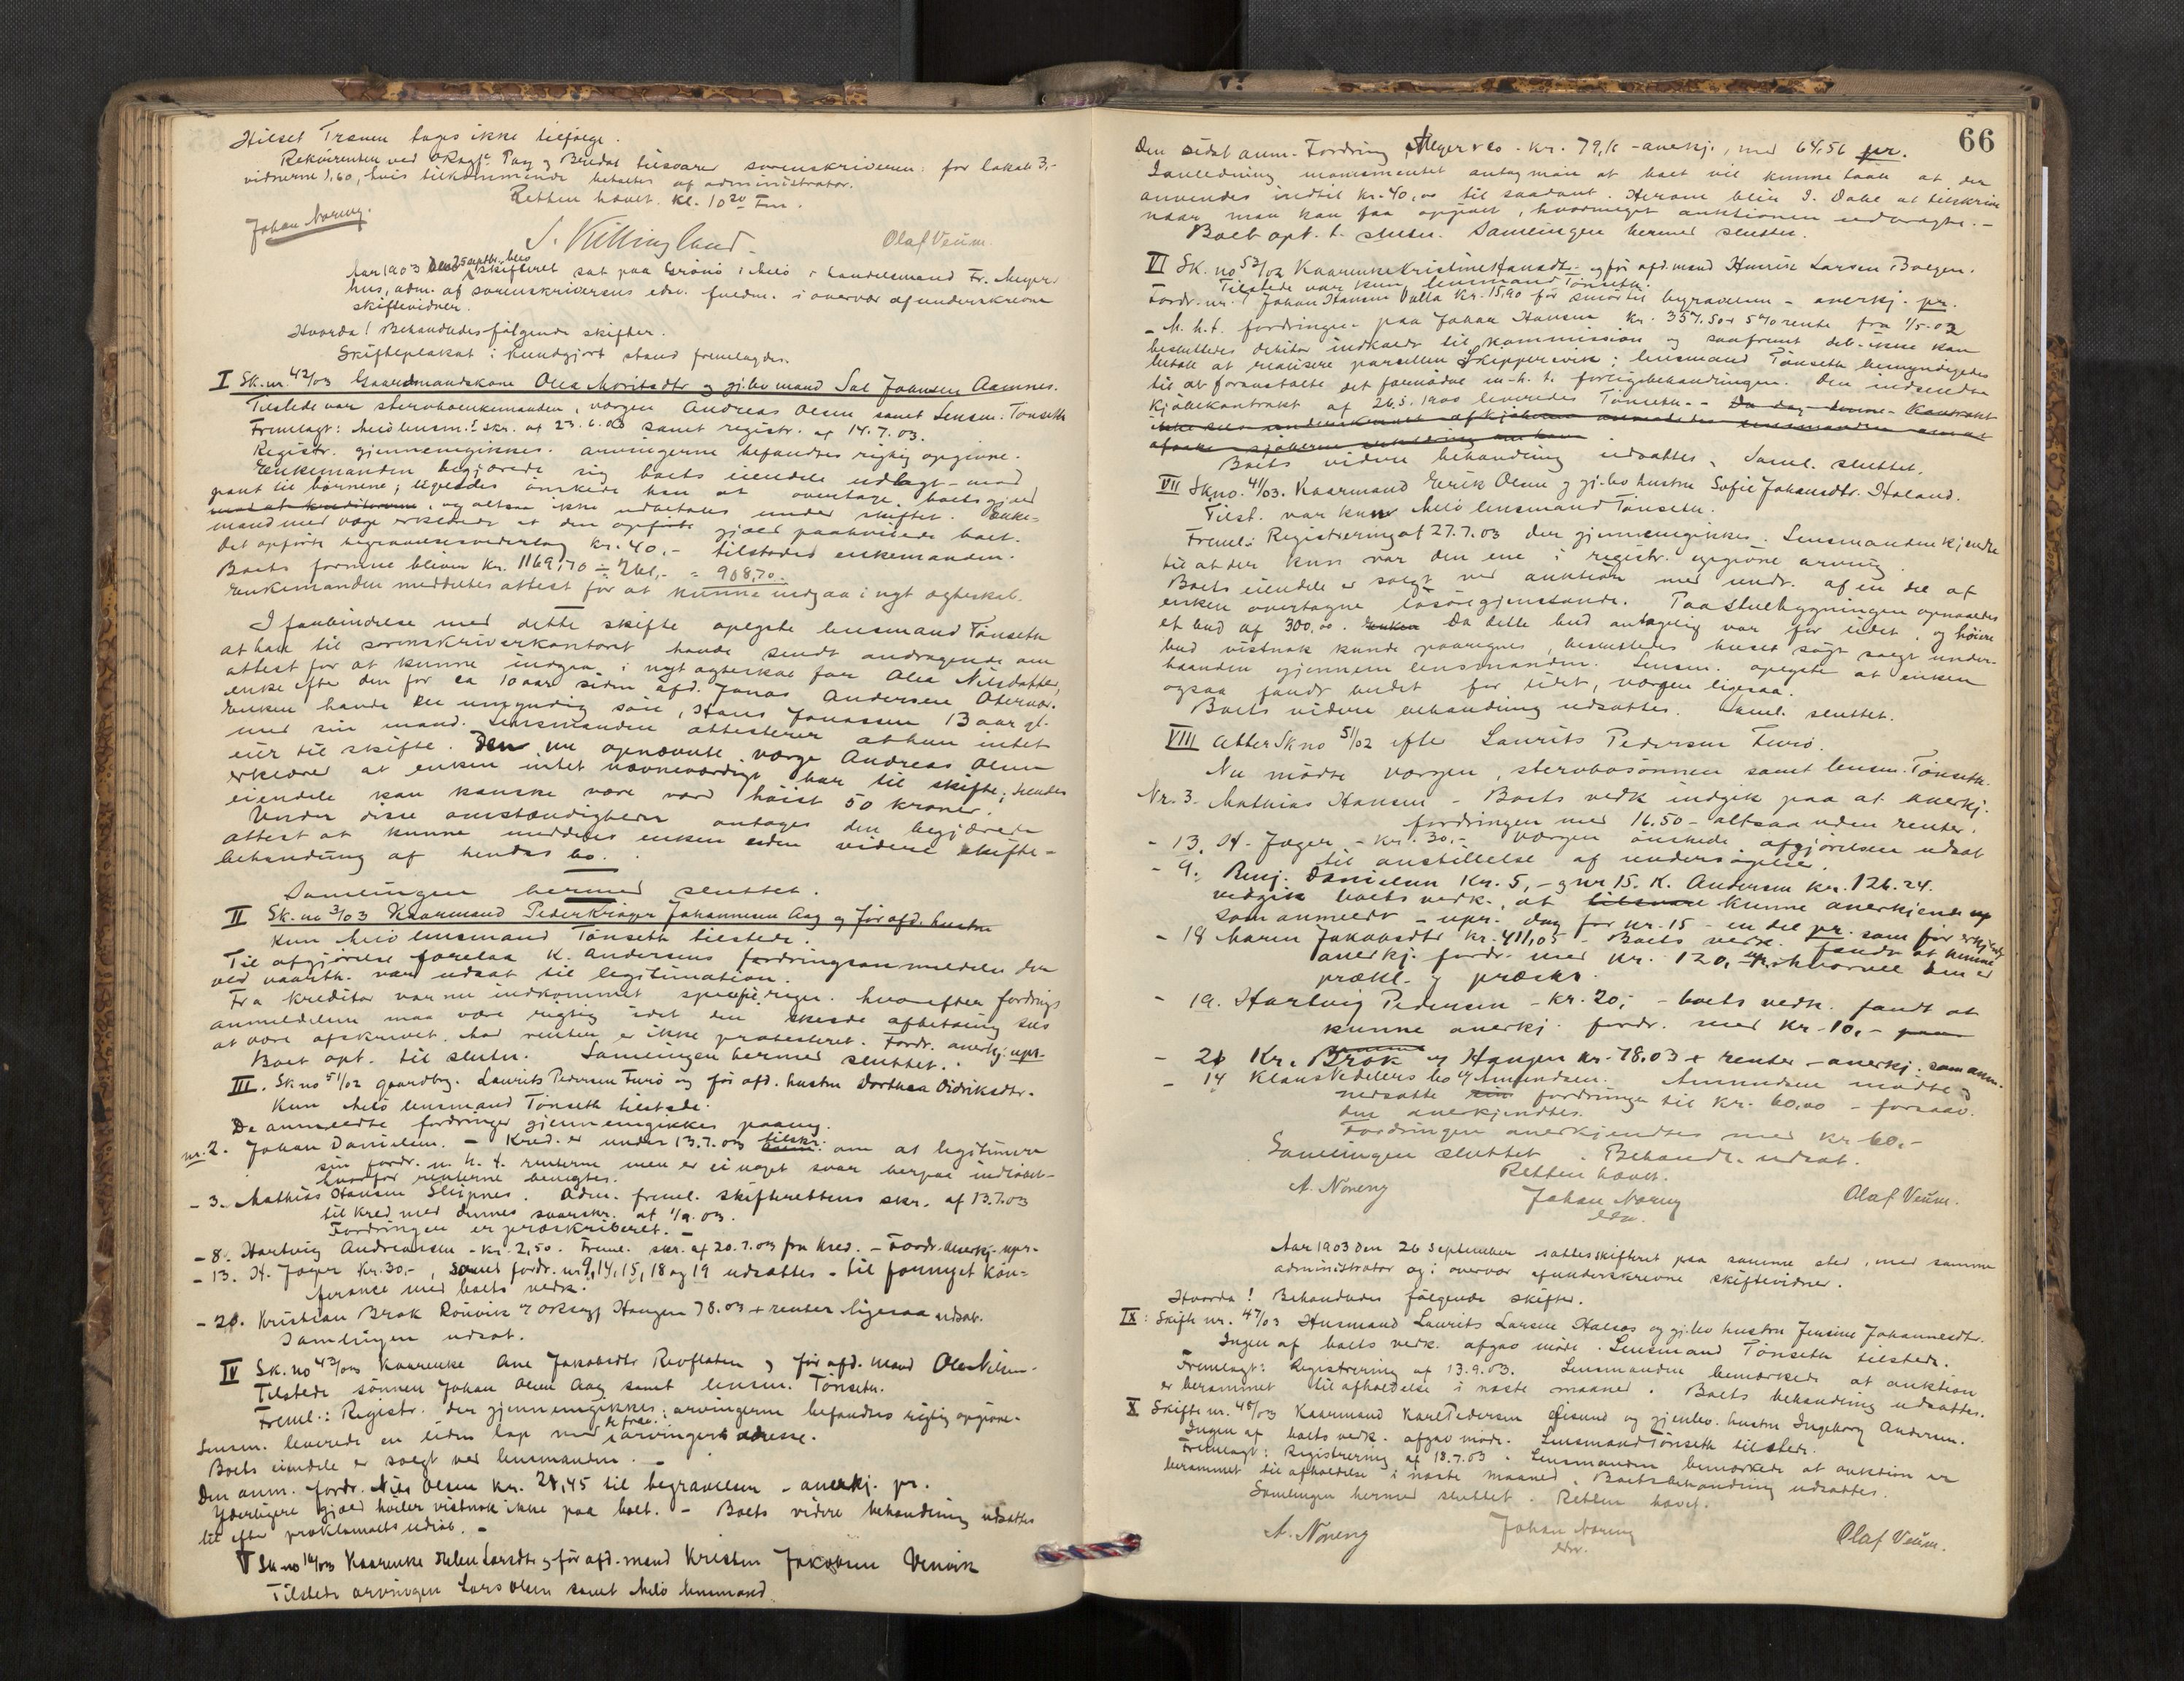 Hilset Tranen tages ikke tilfølge.
Rekvirenten ved ORagf. Pay og Beredal tilsvarer sorenskriveren: for lokale 3,-
vidnerne 1,60, hvis tilkommende betaltes af administrator.
Retten hævet. Kl. 10 20 Fm.
Johan Noreng.
S. Killingland.
Olaf Veum.
Aar 1903 den 25 septbr. blev skifteret sat paa Grönö i Melö i handelsmand Fr. Meyers
hus, adm. af sorenskriverens edsv. fuldm. i overvær af underskrevne
skiftevidner.
Hvorda! Behandledes følgende skifter.
Skifteplakat i kundgjort stand fremlagdes.
I Sk. nr. 42/03 Gaardmandskone Olea Moritsdtr og gj.lev mand Sal Johnsen Aamnes.
Tilstede var stervboenkemanden, værgen Andreas Olsen samt lensm. Tönseth
Fremlagt: Melö lensm.s skr. af 23.6.03 samt registr. af 14.7.03.
Registr. gjennemgikkes. arvingerne befandtes rigtig opgivne.
Enkemanden begjærede sig boets eiendele udlagt mod
pant til börnene; ligeledes önskede han at overtage boets gjæld
mod at kreditorerne, og altsaa ikke udbetales under skiftet. Enke-
mand med værge erklærede at den opförte gjæld paahvilede boet.
Det opförte begravelsesvederlag kr. 40,- tilstodes enkemanden.
Boets formue bliver kr. 1169,70 ÷ 261,- = 908,70.
Enkemanden meddeltes attest for at kunne indgaa i nyt ægteskab.
I forbindelse med dette skifte oplyste lensmand Tönseth
at han til sorenskriverkontoret havde sendt andragende om
attest for at kunne indgaa i nyt ægteskab for Olea Nilsdatter,
enke efter den for ca 10 aar siden afd. Jonas Andersen Aternæs.
Enken havde en umyndig sön, Hans Jonassen 13 aar gl.
med sin mand. Lensmanden attesterer at hun intet
eier til skifte. Den nu opnævnte værge Andreas Olsen
erklærer at enken intet nævneværdigt har til skifte; hendes
eiendele kan kanske være værd höist 50 kroner.
Under disse omstændigheder antages den begjærede
attest at kunne meddeles enken uden videre skifte-
behandling af hendes bo.
Samlingen hermed sluttet.
II Sk. nr 3/03 Kaarmand Peder Kröger Johannesen Aag og för afd. hustru
Kun Melö lensmand Tönseth tilstede.
Til afgjörelse forelaa K. Andersens fordringsanmeldelse der
ved vaarth. var udsat til legitimation.
Fra kreditor var nu indkommet specif. regn. hvorefter fordrings
anmeldelsen maa være rigtig idet den skeede afbetaling sees
at være afskrevet. Mod renten er ikke protesteret. Fordr. anerkj. upr.
Boet opt. til slutn. Samlingen hermed sluttet.
III. Sk no 51/02 gaardbr. Laurits Pedersen Furö og för afd. hustru Dorthea Didriksdtr.
Kun Melö lensmand Tönseth tilstede.
De anmeldte fordringer gjennemgikkes paany.
nr. 2. Johan Danielsen. - Kred. er under 13.7.03 tilskr. om at legitimere
sin fordr. m. h. t. renterne men er ei noget svar herpaa indløbet
hvorfor renterne benegtes.
- 3. Mathias Hansen Sleipnes. Adm. freml. skifterettens skr. af 13.7.03
til kred med dennes svarskr. af 1/9.03.
Fordringen er præskriberet. -
- 8. Hartvig Andreassen - kr. 2,50. Freml. skr. af 20.7.03 fra kred. - Fordr. anerkj. upr.
- 13. H. Jæger kr. 30,-, samt fordr. nr 9, 14, 15, 18 og 19 udsattes - til fornyet kon-
ferance med boets vedk.
- 20. Kristian Brok Rönvik Haugen 78.03 + renter ligesaa udsat.
Samlingen udsat.
IV Sk. no 43/03 Kaarenke Ane Jakobsdtr Revflaten og för afd. mand Ole Nilsen.
Tilstede sönnen Johan Olsen Aag samt lensm. Tönseth.
Freml.: Registr. der gjennemgikkes; arvingerne befandtes rigtig opgivne.
Lensm. leverede en liden lap med de frav. arvingers adresse.
Boets eiendele er solgt ved lensmanden. -
Den anm. fordr. Nils Olsen kr. 28,45 til begravelsen - anerkj. pr.
Yderligere gjæld hviler vistnok ikke paa boet. - Boets videre behandling udsattes
til efter proklamaets udløb. -
V Sk no 14/03 Kaarenke Helen Larsdtr og för afd. mand Kristen Jakobsen Venvik
Tilstede arvingen Lars Olsen samt Melö lensmand.
66
Den sidst anm. Fordring, Meyer & co - kr. 79,16 - anerkj., med 64,56 pr.
I anledning monumentet antog man at boet vil kunne taale at der
anvendes indtil kr. 40,00 til saadant. Herom blir I. Dahl at tilskrive
naar man kan faa opgivet, hvormeget auktionen udbragte. -
Boet opt. t. slutn. Samlingen hermed sluttet.
VI Sk. no 52/02 Kaarenke Kristine Hansdtr. og för afd. mand Henrik Larsen Bolgen.
Tilstede var kun lensmand Tönseth.
Fordr. nr. 1 Johan Hansen Valla kr. 15,90 for smör til begravelsen - anerkj. pr.
- M. h. t. fordringen paa Johan Hansen kr. 337.50 + 5% rente fra 1/5-02
besluttedes debitor indkaldt til kommission og saafremt deb. ikke kan
betale at realisere parsellen Skippersvik; lensmand Tönseth bemyndigedes
til at foranstalte det fornödne m. h. t. forligsbehandlingen. Den indsendte
kjöbekontrakt af 26.5.1900 leveredes Tönseth. - Da denne kontrakt
ikke underskrevet af kjöberen anmodedes lensmanden om at
afæske kjöberen erklæring om han
Boets videre behandling udsattes. Saml. sluttet.
VII Sk no. 41/03. Kaarmand Erik Olsen og gj.lev hustru Sofie Johansdtr. Haland.
Tilst. var kun Melö lensmand Tönseth.
Freml.: Registrering af 27.7.03 der gjennemgikkes. Lensmanden kjendte
til at der kun var den ene i registr. opgivne arving
Boets eiendele er solgt ved auktion med undt. af en del af
enken overtagne lösöregjenstande. Paa Stuebygningen opnaaedes
et bud af 300,00. Enken Da dette bud antagelig var for lidet, og höiere
bud vistnok kunde paaregnes, besluttedes huset sögt solgt under-
haanden gjennem lensmanden. Lensm. oplyste at enken
ogsaa fandt budet for lidet, værgen ligesaa.
Boets videre behandling udsattes. Saml. sluttet.
VIII Atter Sk no 51/02 efter Laurits Pedersen Furö.
Nu mödte værgen, stervbosönnen samt lensm. Tönseth.
Nr. 3. Mathias Hansen - Boets vedk indgik paa at anerkj.
fordringen med 16.50 - altsaa uden renter.
- 13. H. Jæger - kr. 30,- Værgen önskede afgjörelsen udsat
til anstillelse af undersögelse.
- 9. Benj. Danielsen kr. 5,- og nr 15. K. Andersen kr. 126.24.
vedgik boets vedk., at tilsvare kunne anerkjendes
som anmeldt - upr. dog for nr. 15 - en del pr. som för erkjendt
- 18 Maren Jakobsdtr kr. 411,05 - Boets vedk. fandt at kunne
anerkj. fordr. med kr. 120,- upr. ihvorvel den er
prækl. og præskr.
- 19. Hartvig Pedersen - kr. 20,- - boets vedk. fandt at
kunne anerkj. fordr. med kr. 10,-
- 20 Kr. Brok og Haugen kr. 78.03 + renter - anerkj. som anm.
- 14 Klaus Vedelers bo v/ Amundsen. Amundsen mödte og
nedsatte sin fordringen til kr. 60,00 - forsaav.
den anerkjendtes.
Fordringen anerkjendtes med kr 60,-
Samlingen sluttet. Behandl. udsat.
Retten hævet.
A. Noreng
Johan Noreng
edsv.
Olaf Veum.
Aar 1903 den 26 september sattes skifteret paa samme sted, med samme
administrator og i overvær af underskrevne skiftevidner.
Hvorda! Behandledes følgende skifter.
IX: Skifte nr. 47/03 Husmand Laurits Larsen Halsos og gj.lev hustru Jensine Johannesdtr.
Ingen af boets vedk. afgav möde. Lensmand Tönseth tilstede.
Fremlagt: Registrering af 13.9.03. Lensmanden bemærkede at auktion
er berammet til afholdelse i næste maaned. Boets behandling udsattes.
X Skifte nr. 48/03 Kaarmand Karl Pedersen Øisund og gjenlev. hustru Ingeborg Andersen.
Ingen af boets vedk. afgav möde. Lensmand Tönseth tilstede.
Fremlagt: Registrering af 18.7.03. Lensmanden bemærkede at auktion er
berammet til afholdelse i næste maaned. Boets behandling udsattes.
Samlingen hermed sluttet. Retten hævet.
A. Noreng
Johan Noreng
edsv.
Olaf Veum.